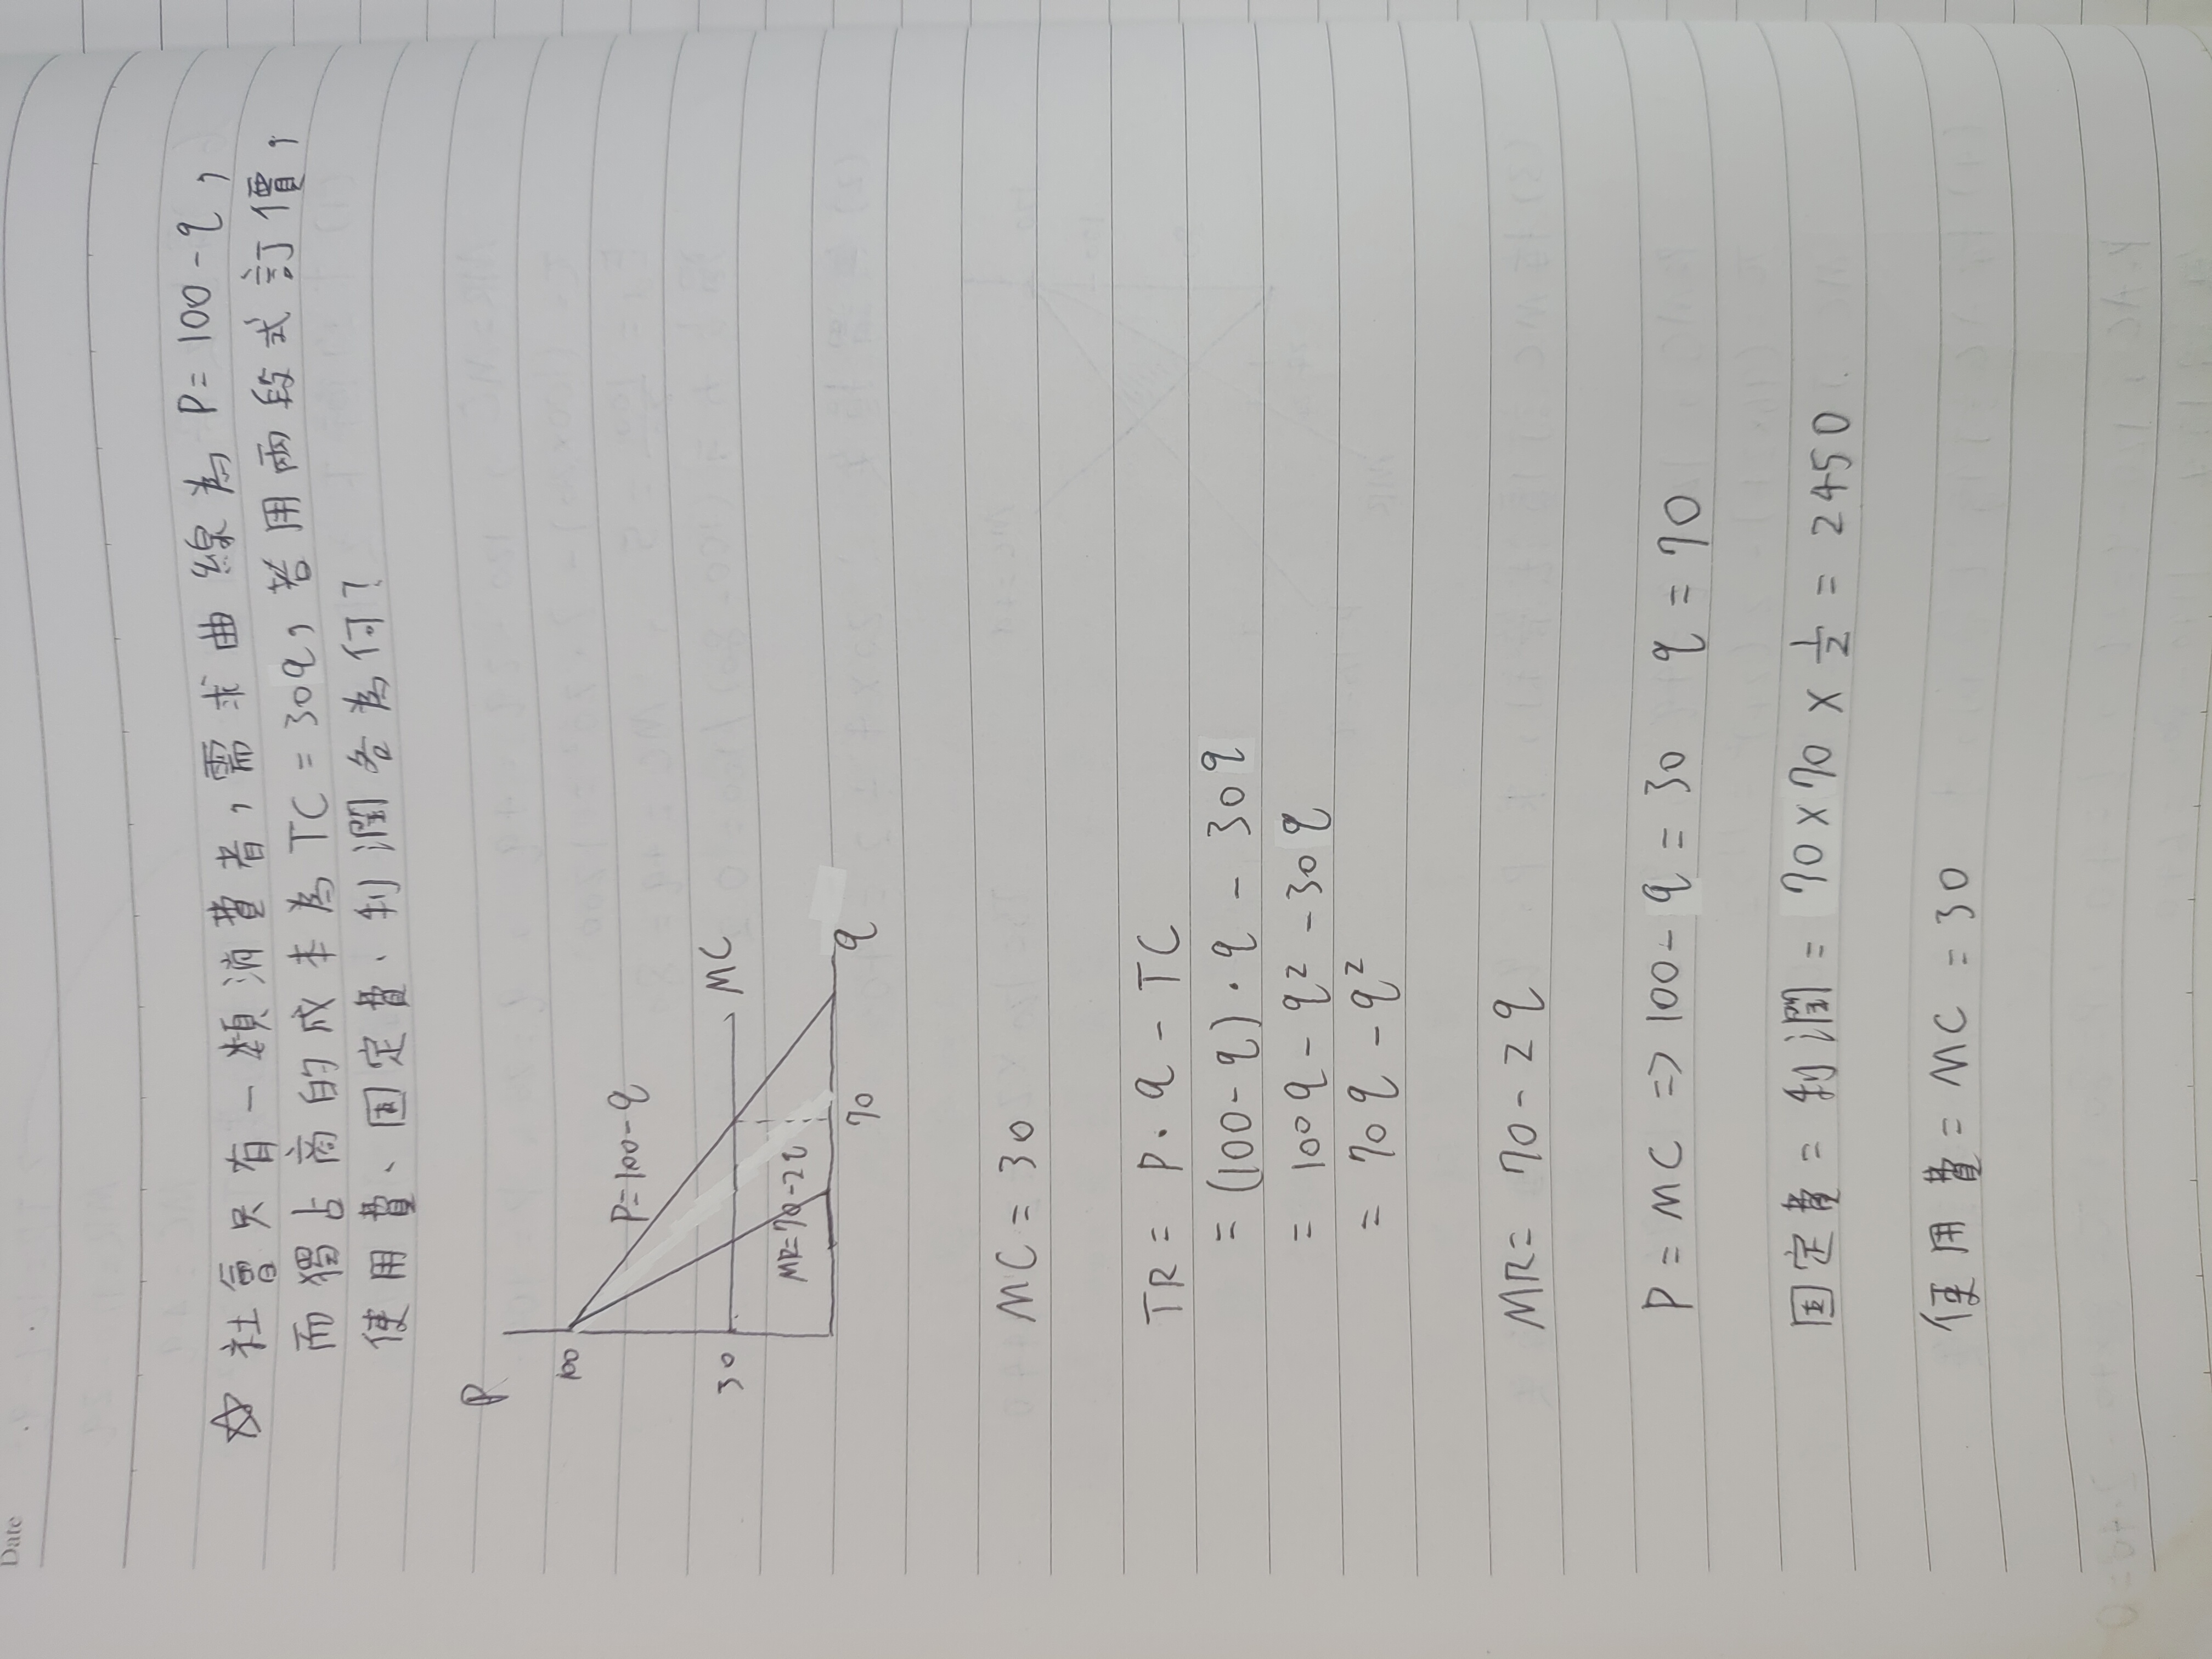 Date
☆ 社會只有一類消費者,需求曲線為 P=100-q,
而獨占商的成本為 TC=30q,若用兩段式訂價,
使用費、固定費、利潤各為何?
P
100
P=100-q
30
MC
MR=70-2q
70
q
MC = 30
TR = P·q - TC
= (100-q)·q - 30q
= 100q - q² - 30q
= 70q - q²
MR= 70-2q
P = MC => 100-q = 30 q = 70
固定費 = 利潤 = 70×70×1/2 = 2450
使用費 = MC = 30